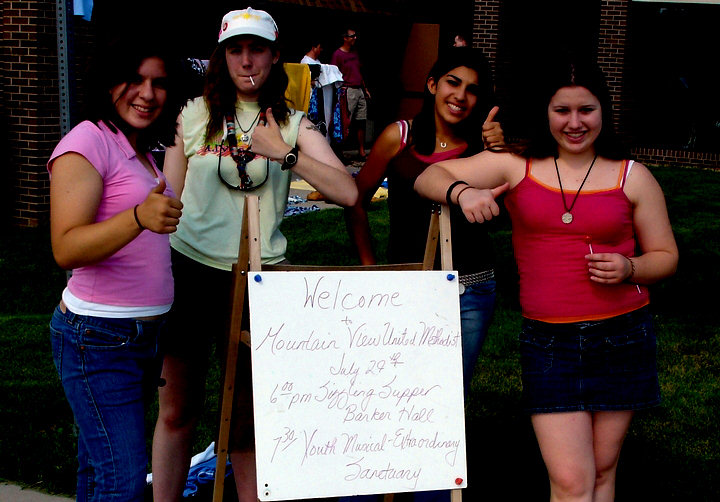 Welcome
to
Mountain View United Methodist
July 29th
6:00 pm Sizzling Supper
Barker Hall
7:30 Youth Musical-Extraordinary
Sanctuary